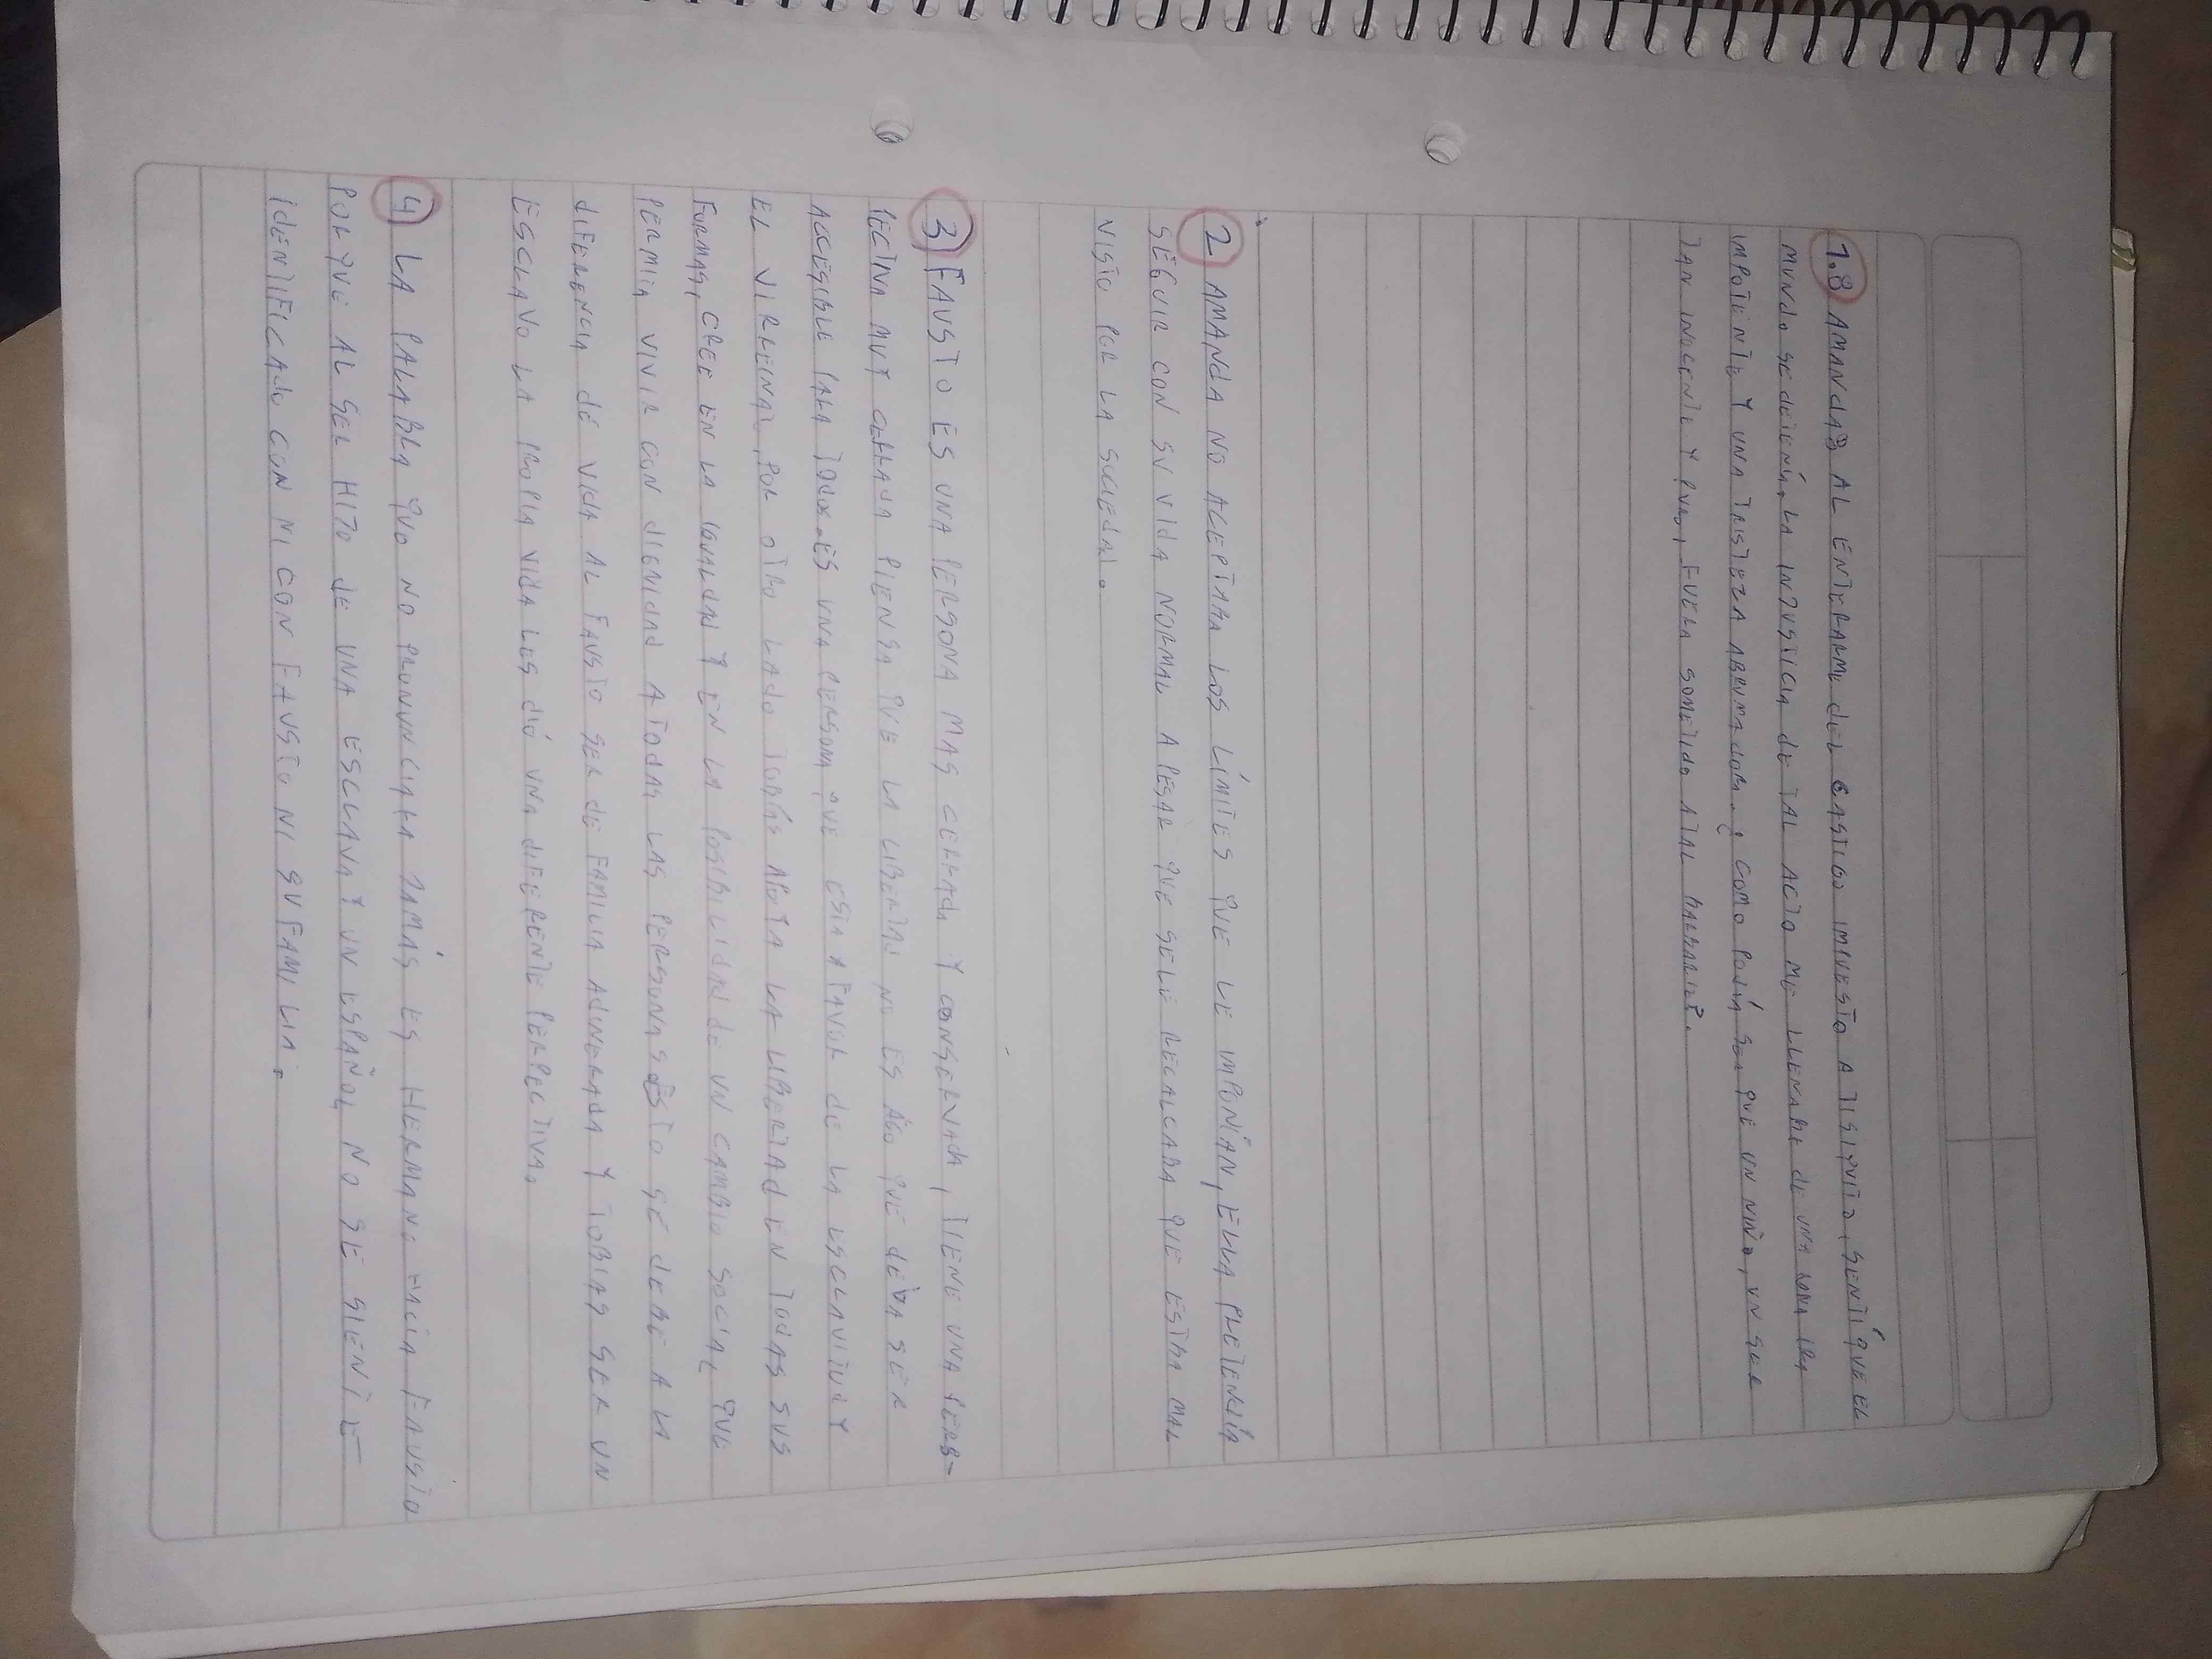 1.8 AMANDA: AL ENTERARME dEL CASTIGO IMPUESTO A TISIQUITO, SENTÍ QUE EL
MUNdo SE dETENÍA, LA INJUSTICIA dE TAL ACTO ME LLENABA dE UNA IRA
IMPOTENTE Y UNA TRISTEZA ABRUMAdORA. ¿COMO POdÍA SER QUE UN NIÑO, UN SER
TAN INOCENTE Y PURO, FUERA SOMETIdO A TAL BARBARIE?.
2 AMANdA NO ACEPTABA LOS LÍMITES QUE LE IMPONÍAN, ELLA PRETENDÍA
SEGUIR CON SU VIdA NORMAL A PESAR QUE SE LE RECALCABA QUE ESTABA MAL
VISTO POR LA SOCIEDAd.
3 FAUSTO ES UNA PERSONA MAS CERRAdA Y CONSERVAdA, TIENE UNA PERS-
PECTIVA MUY CERRAdA PIENSA QUE LA LIBERTAd NO ES ALGO QUE dEBA SER
ACCESIBLE PARA TOdOS. ES UNA PERSONA QUE ESTA A FAVOR dE LA ESCLAVITUd Y
EL VIRREINAT, POR OTRO LAdO TOBÍAS APOYA LA LIBERTAd EN TOdAS SUS
FORMAS, CREE EN LA IGUALDAd Y EN LA POSIBILIdAd dE UN CAMBIO SOCIAL QUE
PERMIA VIVIR CON dIGNIdAd A TOdAS LAS PERSONAS ESTO SE dEBE A LA
dIFERENCIA dE VIdA AL FAUSTO SER dE FAMILIA AdINERAdA Y TOBIAS SER UN
ESCLAVO LA PROPIA VIdA LES dIÓ UNA dIFERENTE PERPECTIVA.
4 LA PALABRA QUE NO PRONUNCIARA JAMÁS ES HERMANO HACIA FAUSTO
PORQUE AL SER HIJO dE UNA ESCLAVA Y UN ESPAÑOL NO SE SIENTE
IdENTIFICAdO CON NI CON FAUSTO NI SU FAMILIA.